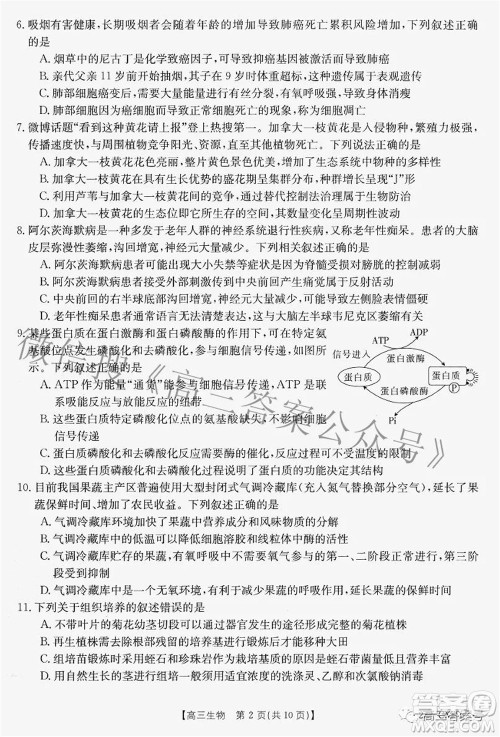 6. 吸烟有害健康，长期吸烟者会随着年龄的增加导致肺癌死亡累积风险增加，下列叙述正确
的是
A. 吸烟烟中的尼古丁是化学致癌因子，可导致抑癌基因被激活而引发肺癌
B. 亲代父亲 11 岁前开始抽烟，其子代出现肥胖的现象可能属于表观遗传
C. 肺部细胞癌变后，在机体内可能进行有丝分裂，有氧呼吸增强，导致身体消瘦
D. 肺部细胞癌变是因为癌细胞或正常细胞死亡的现象，属于细胞坏死
7. 微博话题“看到这种黄花请上报”登上热搜第一。加拿大一枝黄花是入侵物种，繁殖力极强，
传播速度快，与周围植物竞争阳光、资源，直至其他植物死亡。下列说法正确的是
A. 加拿大一枝黄花花色亮丽，适当种植黄色景色优美，可增加生物多样性
B. 加拿大一枝黄花在生长旺盛期呈集群分布，种群数量增长呈现“J”形
C. 利用芦苇与加拿大一枝黄花的竞争，通过替代控制法治理属于生物防治
D. 加拿大一枝黄花与入侵地的生物发生生存竞争，不会改变群落演替的速度
8. 阿尔茨海默病是一种多发于老年人群的神经系统退行性疾病，又称老年痴呆。患者的大脑
皮层弥漫性萎缩，沟回增宽，神经元大量减少。下列相关叙述正确的是
A. 阿尔茨海默病患者可能出现大小永禁等症状是因为脊髓受损与高级中枢的控制减弱
B. 阿尔茨海默病患者给予疼痛刺激后，在中央前回处产生痛觉，属于反射
C. 中央前回的右半球底部沟回增宽，可能影响患者右侧面部表情变得僵硬
D. 患者听力正常，但听不懂他人讲话，可能与大脑左半球韦尼克区萎缩有关
9. 某些蛋白质在蛋白激酶和蛋白磷酸酶的作用下，可在特定的氨
基酸位点发生磷酸化和去磷酸化，参与细胞信号传递，如图所
示。下列叙述正确的是
A. ATP 作为能量“通货”能参与信号传递，是因为 ATP 是联
系吸能反应与放能反应的纽带
B. 这些蛋白质特定磷酸化位点的氨基酸缺失，不影响细胞
信号传递
C. 蛋白质磷酸化和去磷酸化反应，说明了蛋白质结构与功能相适应的观点
D. 蛋白质磷酸化和去磷酸化过程体现了蛋白质的催化、控制物质进出的功能
信号进入
ATP
ADP
蛋白激酶
蛋白质
蛋白质
P
蛋白磷酸酶
Pi
10. 目前我国果蔬主产区普遍使用大型封闭式气调冷藏库（充入氮气替换部分空气），延长了果
蔬保鲜时间、增加了农民收益。下列叙述正确的是
A. 气调冷藏库环境加快了果蔬中营养成分和风味物质的分解
B. 气调冷藏库配备的气体过滤装置应及时清除乙烯和生物自由基
C. 气调冷藏库贮存的果蔬，有氧呼吸中不需要氧气参与的第一、二阶段正常进行，第三阶段受
到抑制
D. 气调冷藏库中的低温可以降低果蔬的呼吸作用，延长果蔬的保鲜时间
11. 下列关于组织培养的叙述错误的是
A. 不带叶片的菊花幼茎切段可以通过器官发生的途径形成完整的菊花植株
B. 再生植株形成后需将生根的试管苗通过锻炼后才能移栽大田
C. 组培苗锻炼时采用蛭石和珍珠岩作为栽培基质的原因是其有机质含量丰富
D. 组培苗锻炼前需进行流水清洗，目的是将琼脂等有机物洗涤、灵芝等对幼苗进行消毒
【高三生物　第 2 页(共 10 页)】
微信搜《高三答案公众号》